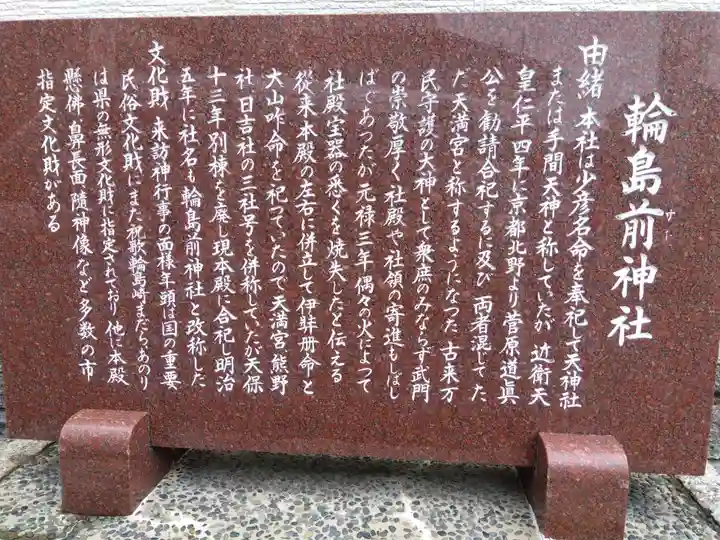 輪島前神社
サキ
由緒 本社は少彦名命を奉祀して天神社
または手間天神と称していたが 近衛天
皇仁平四年に京都北野より菅原道真
公を勧請合祀するに及び 両者混じてた
だ天満宮と称するようになつた 古来万
民守護の大神として衆庶のみならず武門
の崇敬厚く社殿や社領の寄進もしばし
ばであつたが元禄三年偶々の火によつて
社殿宝器の悉くを焼失したと伝える
従来本殿の左右に併立して伊弉册命と
大山咋命を祀つていたので天満宮熊野
社日吉社の三社号を併称していたが天保
十三年別棟を廃し現本殿に合祀し明治
五年に社名も輪島前神社と改称した
文化財 来訪神行事の面様年頭は国の重要
民俗文化財にまた祝歌輪島崎まだら、あのり
は県の無形文化財に指定されており 他に本殿
懸佛 鼻長面 随神像など多数の市
指定文化財がある